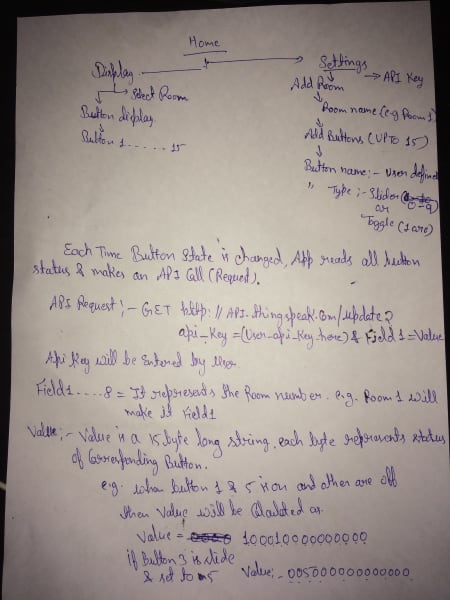 Home
Display
Settings
→ API Key
→ Select Room
Add Room
Button display
Room name (e.g Room 1)
Button 1 ...... 15
Add Buttons (UPTO 15)
Button name :- User defined
" Type :- Slider (0-9)
or
Toggle (1 or 0)
Each Time Button State is changed, App reads all button
status & makes an API Call (Request).
API Request :- GET http://API.thingspeak.com/update?
api_key =(User_api_key here) & Field1 =Value
Api Key will be Entered by User
Field1 .... 8 = It represents the Room number. e.g. Room 1 will
make it Field1
Value :- Value is a 15 byte long string, each byte represents status
of Corresponding Button.
e.g:- when button 1 & 5 is on and other are off
then Value will be Calculated as
Value = 100010000000000
if Button 3 is slide
& set to 5 Value:- 005000000000000